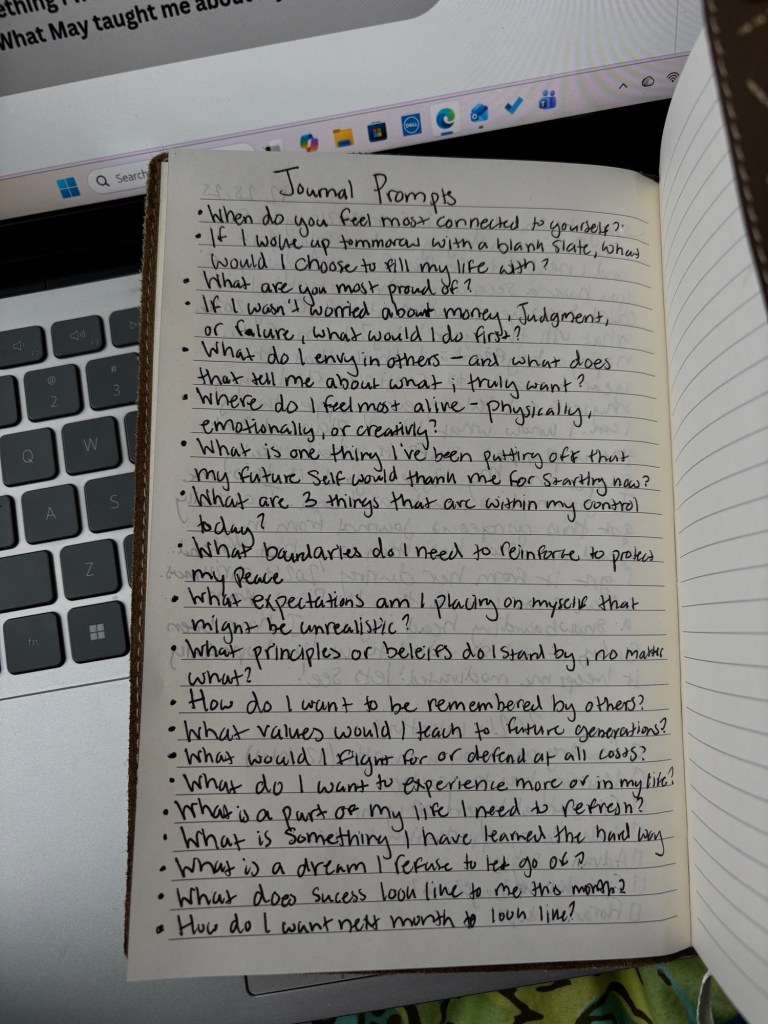 What May taught me about
Search
DELL
Journal Prompts
• When do you feel most connected to yourself?
• If I woke up tommoraw with a blank slate, what
would I choose to fill my life with?
• What are you most proud of?
• If I wasn't worried about money, Judgment,
or failure, what would I do first?
• What do I envy in others - and what does
that tell me about what i truly want?
• Where do I feel most alive - physically,
emotionally, or creativly?
• What is one thing I've been putting off that
my future self would thank me for starting now?
• What are 3 things that are within my control
today?
• What boundaries do I need to reinforce to protect
my peace
• What expectations am I placing on myself that
might be unrealistic?
• What principles or beleifs do I stand by, no matter
what?
• How do I want to be remembered by others?
• What values would I teach to future generations?
• What would I fight for or defend at all costs?
• What do I want to experience more of in my life?
• What is a part of my life I need to refresh?
• What is something I have learned the hard way
• What is a dream I refuse to let go of?
• What does sucess look like to me this month?
• How do I want next month to look like?
@
2
#
3
Q
W
A
S
Z
fn